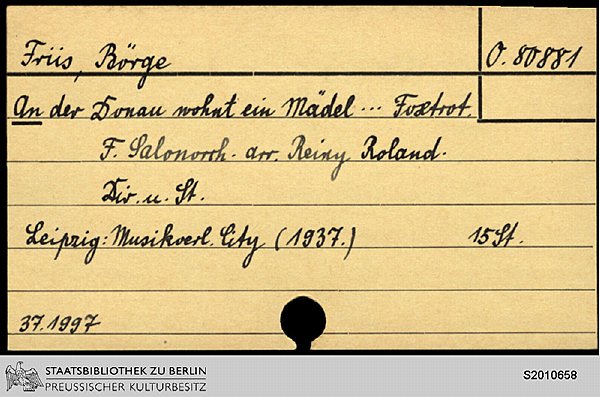 Friis, Börge
O. 80881
An der Donau wohnt ein Mädel ... Foxtrot.
F. Salonorch. arr. Reiny Roland.
Dir. u. St.
Leipzig: Musikverl. City (1937.) 15 St.
37.1997
STAATSBIBLIOTHEK ZU BERLIN
PREUSSISCHER KULTURBESITZ
S2010658